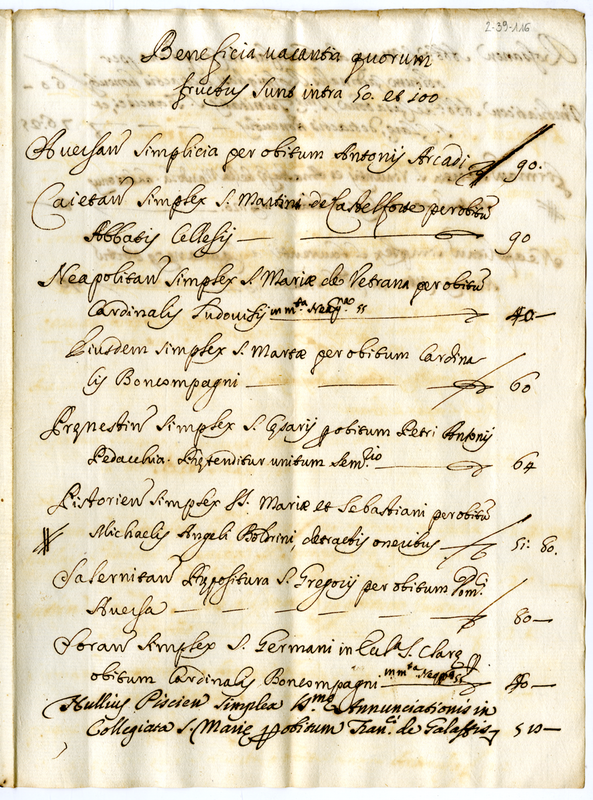 2-39-116
Beneficia vacantia quorum
fructus sunt intra 50. et 100
Aversan simplicia per obitum Antonij Arcadi 90.
Caietan simplex S. Martini de Castelforte per obitũ
Abbatis Cellesij 90
Neapolitan simplex S. Mariæ de Vetrana per obitũ
Cardinalis Ludovisij 40
Eiusdem simplex S. Mariæ per obitum Cardina
lis Boncompagni 60
Pręnestin simplex S. Cęsarij obitum Petri Antonij
Pedacchia. Prętenditur unitum Sem.rio 64
Pistorien simplex SS. Mariæ et Sebastiani per obitũ
Michaelis Angeli Boldrini, detractis oneribus 51: 80.
Salernitan Prępositura S. Gregorij per obitum
Aversa 80
Soran simplex S. Germani in S. Clarę
obitum Cardinalis Boncompagni 40
Nullius Piscien simplex Annunciationis in
Collegiata S. Marię obitum Fran.ci de Galassis 50